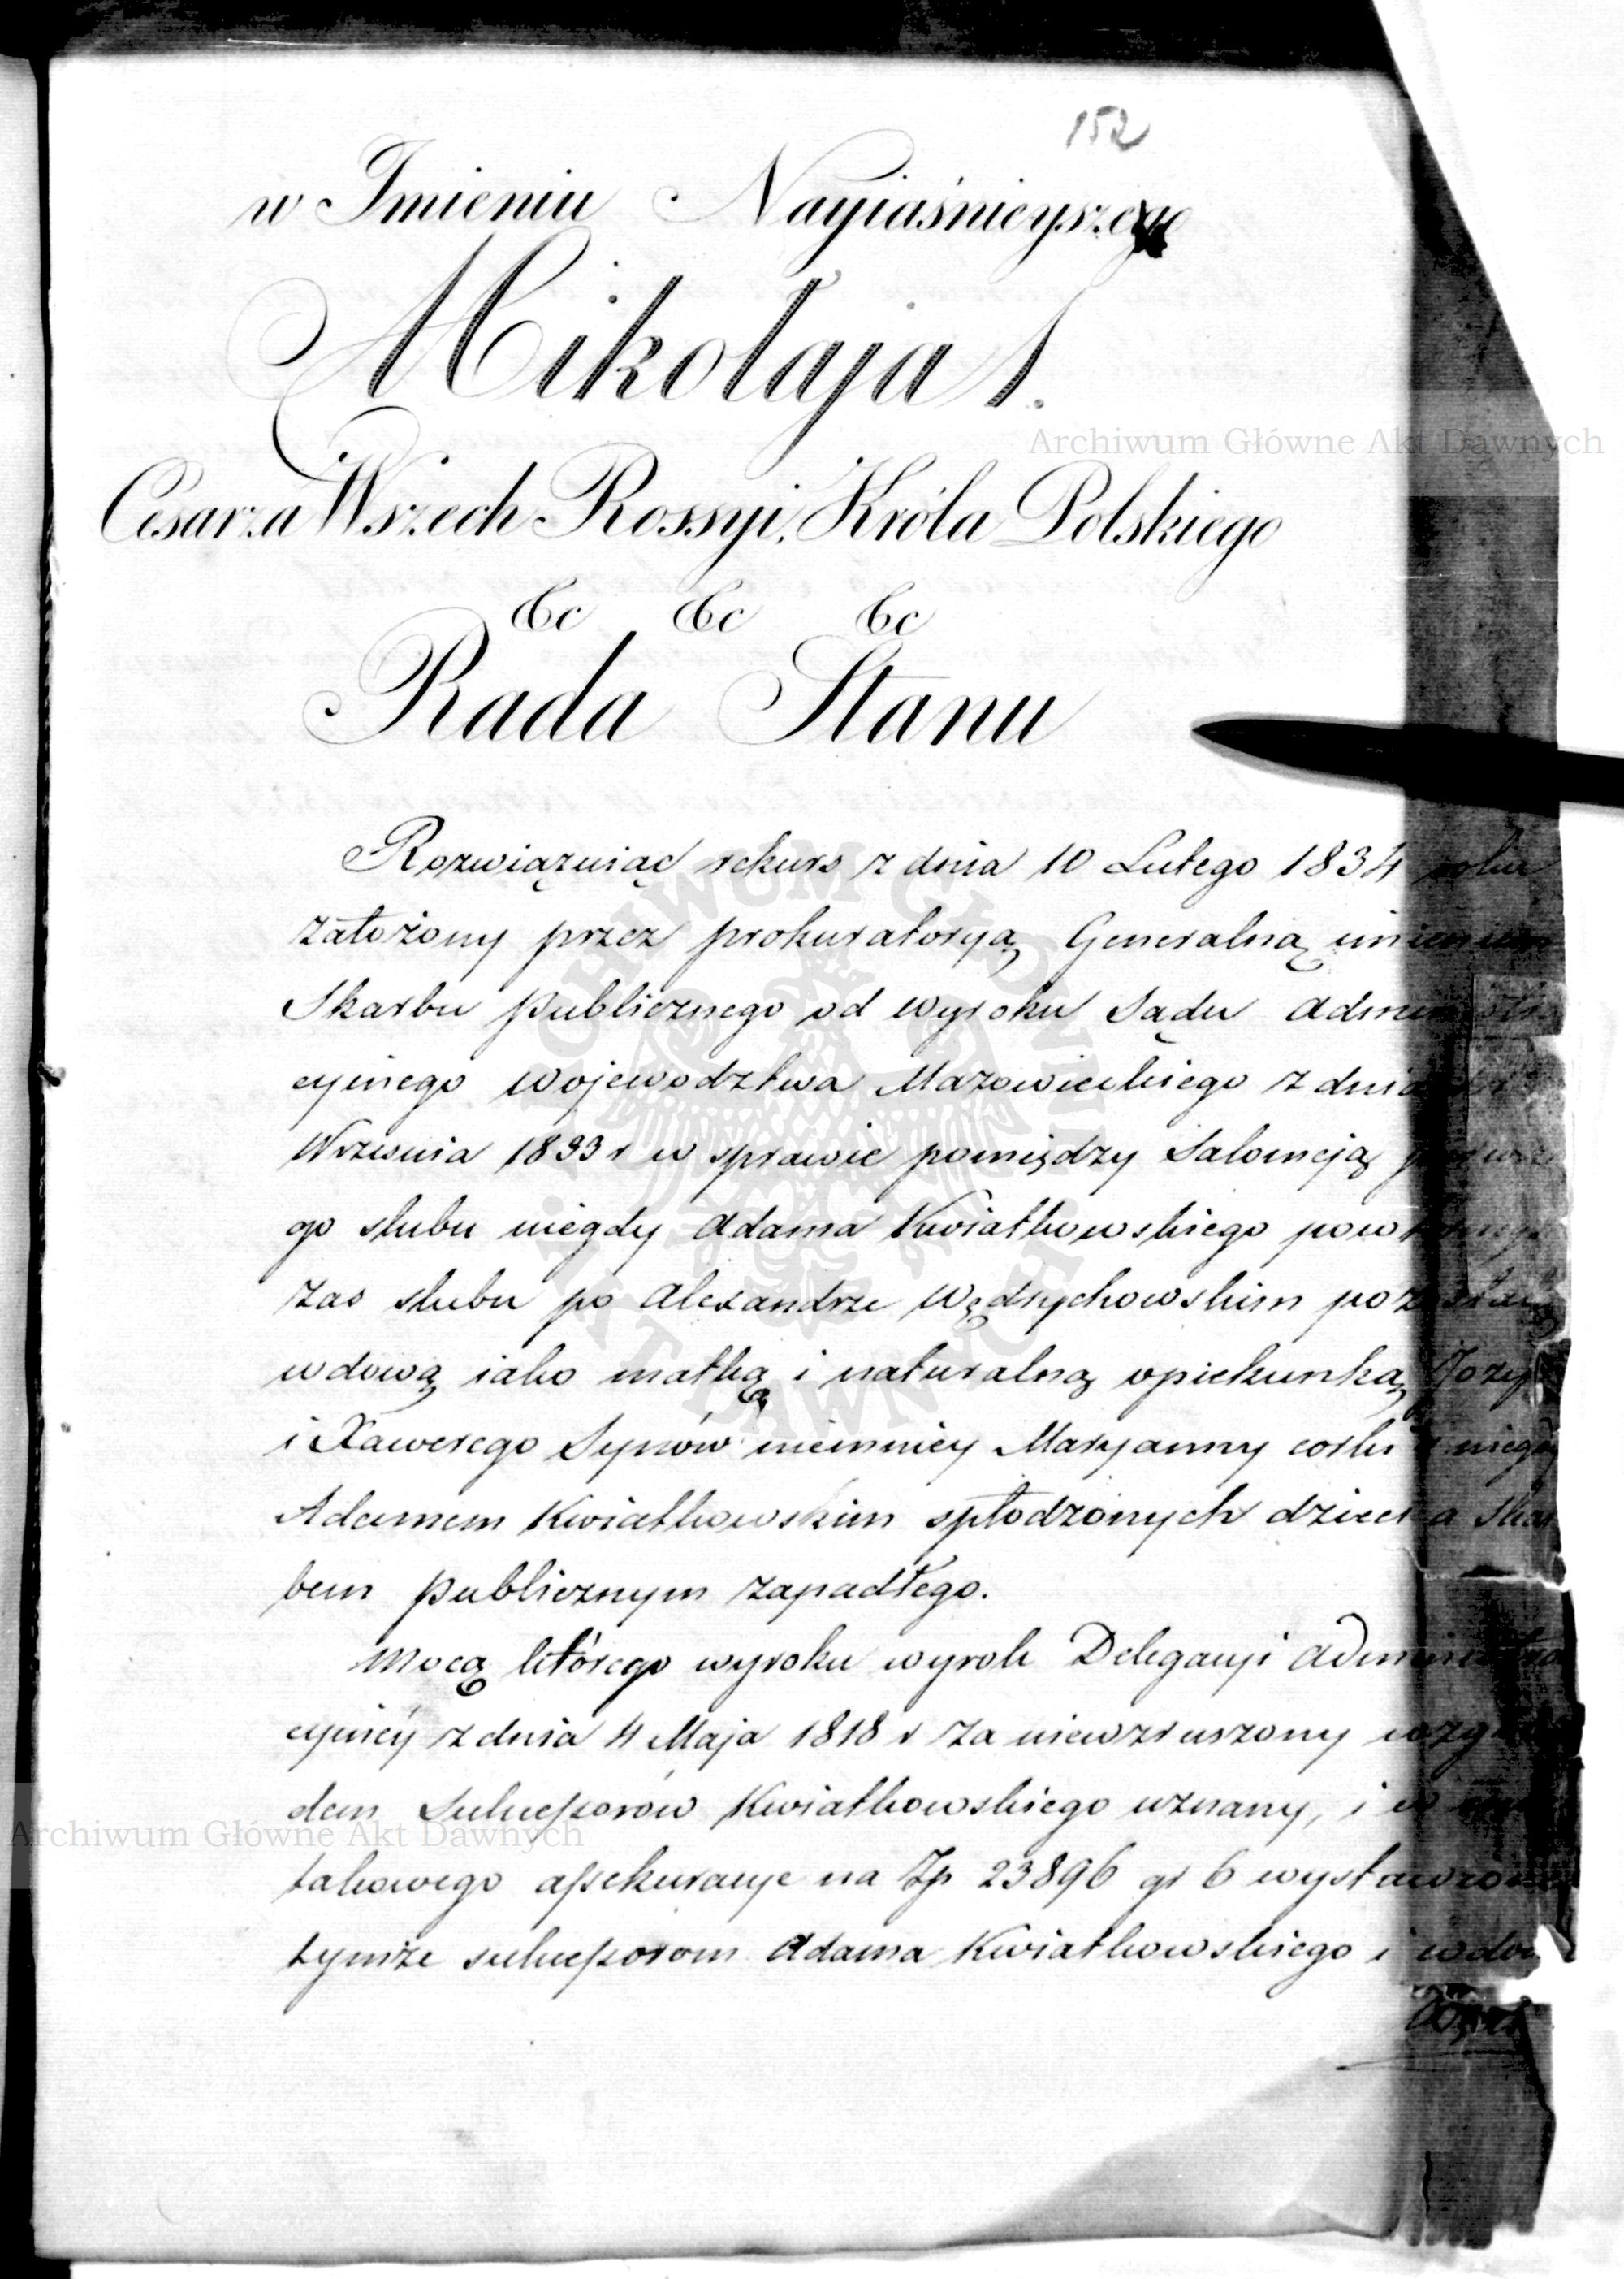 152
w Imieniu Nayiaśnieyszego
Mikołaja I.
Cesarza Wszech Rossyi, Króla Polskiego
&c &c &c
Rada Stanu
Rozwiązuiąc rekurs z dnia 10 Lutego 1834 roku
założony przez prokuratoryą Generalną imieniem
Skarbu publicznego od wyroku Sądu Administra
cyinego Wojewodztwa Mazowieckiego z dnia
Września 1833 r w sprawie pomiędzy Salomeją pierwsze
go slubu niegdy Adama Kwiatkowskiego powtórnego
zas slubu po Alexandrze Wędrychowskim pozostałą
wdową iako matką i naturalną opiekunką Józefa
i Xawerego Synów niemniey Maryanny corki z niegdy
Adamem Kwiatkowskim spłodzonych dzieci a Skar
bem publicznym zapadłego.
Mocą którego wyroku wyrok Delegacyi Administra
cyiney z dnia 4 Maja 1818 r za niewzruszony wzglę
dem Sukcessorów Kwiatkowskiego uznany, i w
takowego assekuracye na Zp 23896 gr 6 wystawione
tymże sukcessorom Adama Kwiatkowskiego i wdo
Archiwum Główne Akt Dawnych
Archiwum Główne Akt Dawnych
ARCHIWUM GŁÓWNE AKT DAWNYCH